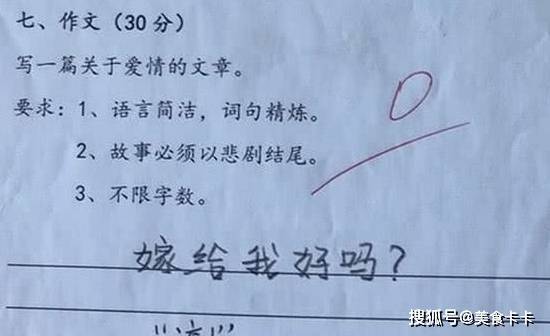 七、作文（30分）
写一篇关于爱情的文章。
要求：1、语言简洁，词句精炼。
2、故事必须以悲剧结尾。
3、不限字数。
0
嫁给我好吗？
搜狐号@美食卡卡